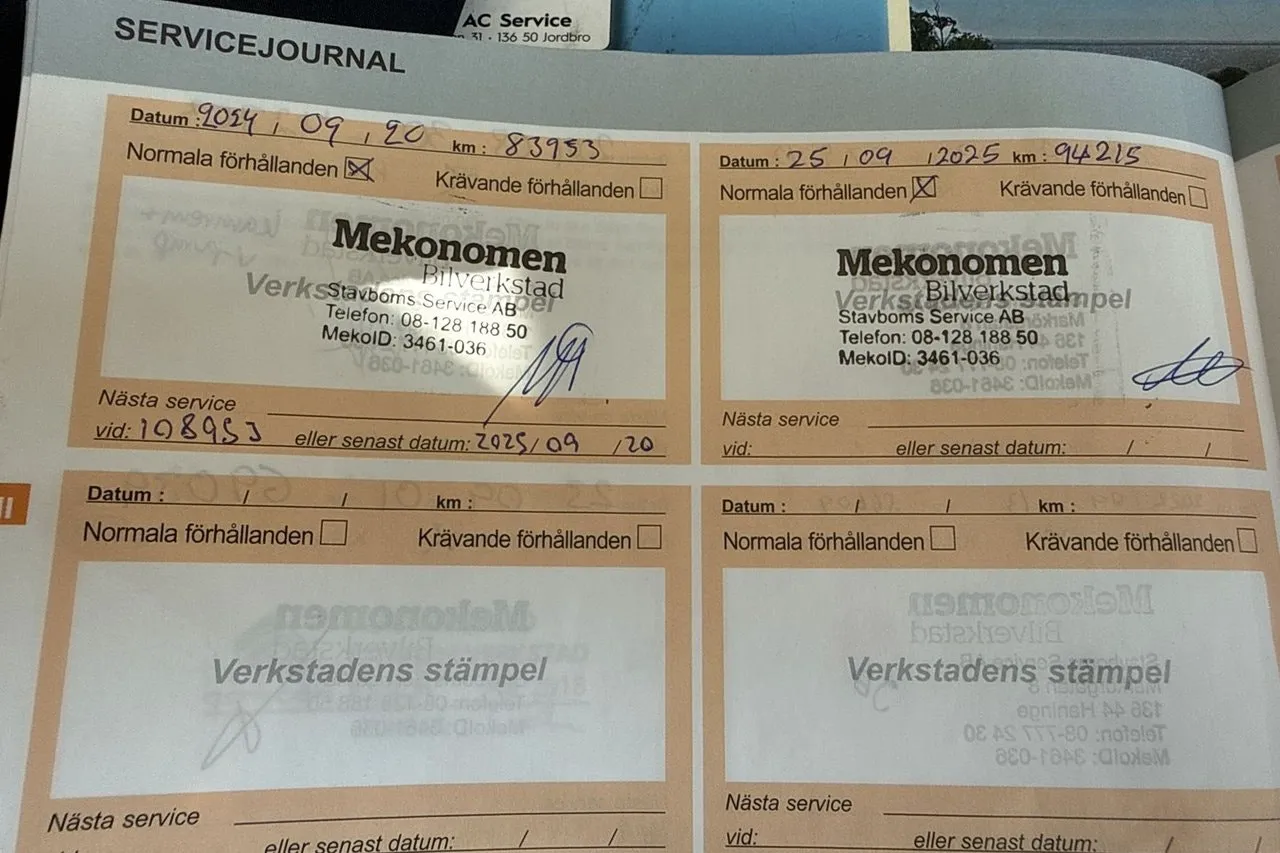 AC Service
31 • 136 50 Jordbro
SERVICEJOURNAL
Datum : 2024 / 09 / 20 km : 83953
Normala förhållanden ☒ Krävande förhållanden ☐
Mekonomen
Bilverkstad
Verkstadens stämpel
Stavboms Service AB
Telefon: 08-128 188 50
MekoID: 3461-036
Nästa service
vid: 108953 eller senast datum: 2025/09 /20
Datum : 25 / 09 / 2025 km : 94215
Normala förhållanden ☒ Krävande förhållanden ☐
Mekonomen
Bilverkstad
Verkstadens stämpel
Stavboms Service AB
Telefon: 08-128 188 50
MekoID: 3461-036
Nästa service
vid: eller senast datum: / /
Datum : / / km :
Normala förhållanden ☐ Krävande förhållanden ☐
Verkstadens stämpel
Nästa service
vid: eller senast datum: / /
Datum : / / km :
Normala förhållanden ☐ Krävande förhållanden ☐
Verkstadens stämpel
Nästa service
vid: eller senast datum: / /